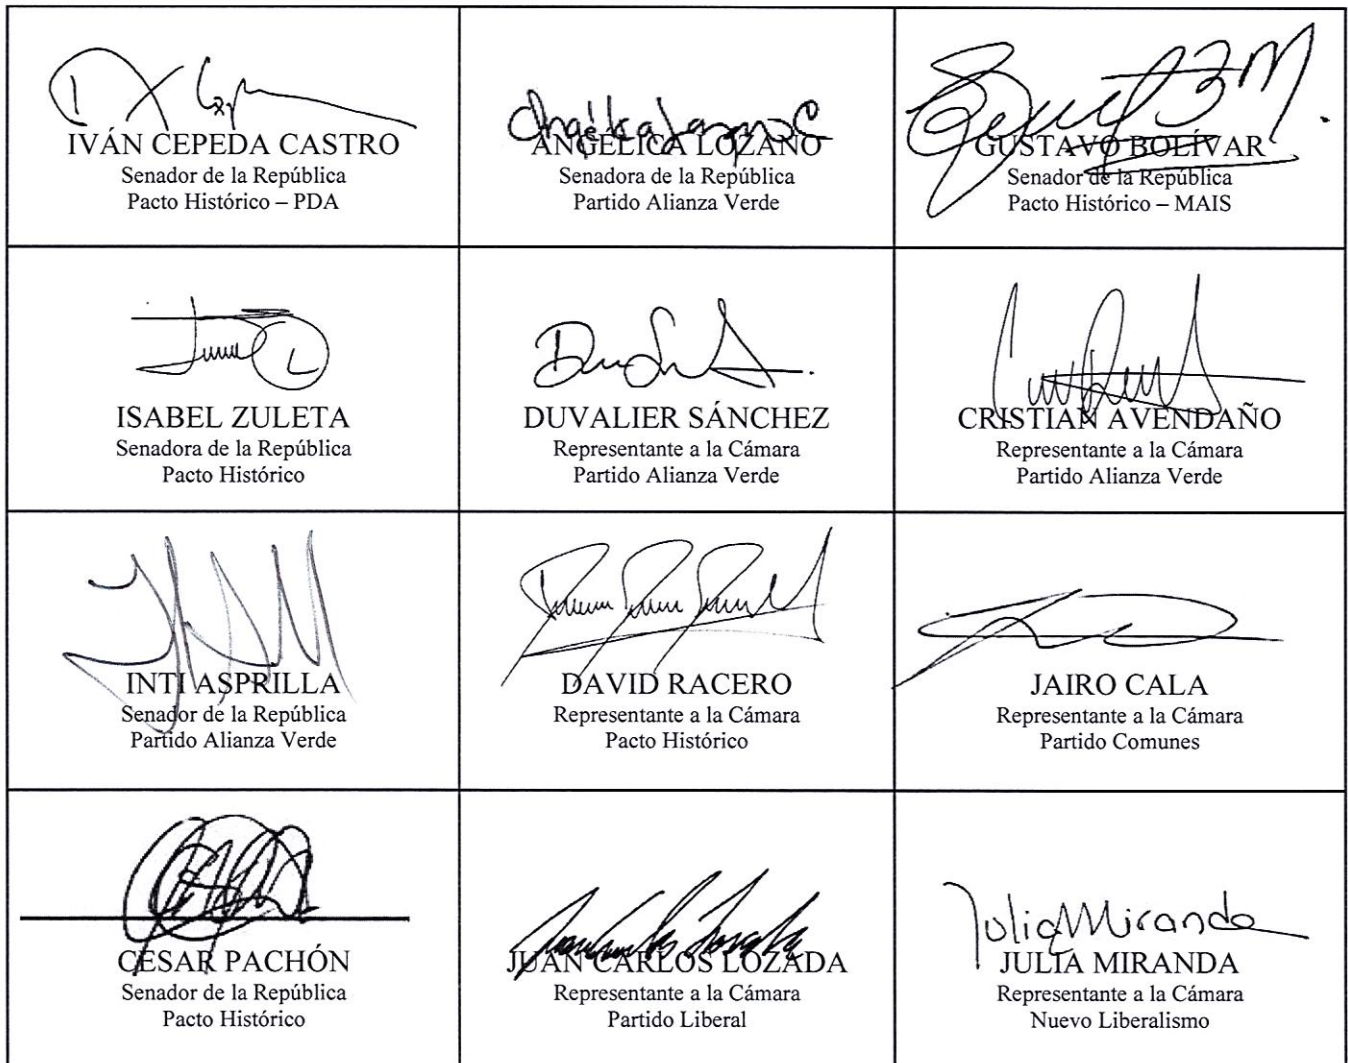 IVÁN CEPEDA CASTRO
Senador de la República
Pacto Histórico – PDA
Angélica Lozano C
ANGÉLICA LOZANO
Senadora de la República
Partido Alianza Verde
GUSTAVO BOLÍVAR
Senador de la República
Pacto Histórico – MAIS
ISABEL ZULETA
Senadora de la República
Pacto Histórico
DUVALIER SÁNCHEZ
Representante a la Cámara
Partido Alianza Verde
CRISTIAN AVENDAÑO
Representante a la Cámara
Partido Alianza Verde
INTI ASPRILLA
Senador de la República
Partido Alianza Verde
DAVID RACERO
Representante a la Cámara
Pacto Histórico
JAIRO CALA
Representante a la Cámara
Partido Comunes
CESAR PACHÓN
Senador de la República
Pacto Histórico
JUAN CARLOS LOZADA
Representante a la Cámara
Partido Liberal
Julia Miranda
JULIA MIRANDA
Representante a la Cámara
Nuevo Liberalismo